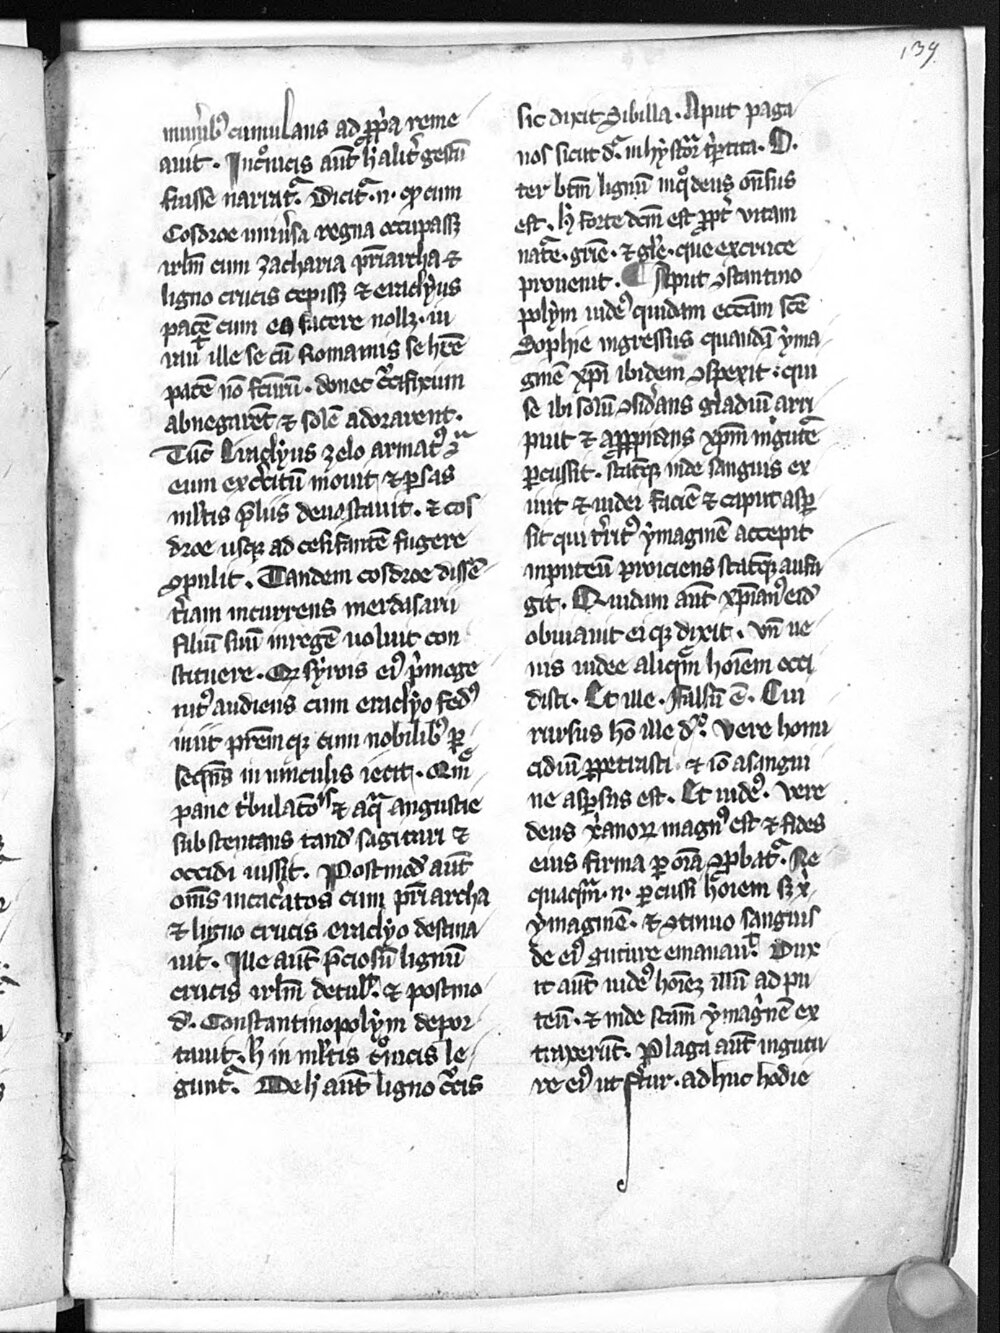 139
mun̄ibꝰ cumulans ad ꝓpͥa reme
auit. In cͦnicis aut̄ h̓ alit̓ gestū
fuisse narratᷓ. Dicitᷓ .n. ꝙ cum
Cosdroe uniu̓sa regna occupass̄
irl̓m cum zacharia pr̄iarcha ⁊
ligno crucis cepiss̄ ⁊ eraclẏus
pacē cum eo facere nollꝫ. iu
rauͭ ille se cū Romanis se hr̄e
pacē nō fc̄urū. donec cͨifixum
abnegarēt ⁊ solē adorarent.
Tūc Eraclyus zelo armatꝰ ↄᷓ
eum exerc̓itū mouit ⁊ ꝑsas
ml̓tis p̄liis deuastauit. ⁊ cos
droe usqꝫ ad cesifantē fugere
ↄpulit. Tandem cosdroe dissē
t̓iam incurrens merdasam
filiū suū in regē uoluit con
stituere. Qꝫ sẏrois eiꝰ pͥmoge
nitꝰ audiens cum eraclẏo fedꝰ
iniit pr̄emqꝫ cum nobilibꝰ ꝑ
seqn̄s in uinculis iecit. Qm̄
pane tͥbulacōīs ⁊ aqᷓ angustie
substentans tand̄ sagittari ⁊
occidi iussit. Postmod̄ aut̄
om̄s incarc̓atos cum pr̄iarcha
⁊ ligno crucis eraclẏo destina
uit. Ille aut̄ p̄ciosū lignū
crucis irl̓m detulͭ. ⁊ postmo
d̄. Constantinopolẏm depor
tauit. h̓ in ml̓tis cͦnicis le
guntᷓ. De h̓ aut̄ ligno cͨcis
sic dixit Sibilla. Aput paga
nos sicut dᷓ. in hẏstor̄ tͥpͣtita. O.
ter btm̄ lignū in qͦ deus on̄sus
est. h̓ forte dcm̄ est ꝓpt̓ vitam
nat̓e. gr̄ie. ⁊ gl̓e. que ex cruce
prouenit. ¶ Aput ↄstantino
polẏm iudeꝰ quidam ecc̄am sc̄e
Sophie ingressus quandā ẏma
ginē xp̄i ibidem ↄspexit. qui
se ibi solū ↄsid̓ans gladiū arri
puit ⁊ apꝓpians xp̄m in gutt̓e
ꝑcussit. statīqꝫ inde sanguis ex
iuit ⁊ iudei faciē ⁊ caput asꝑ
sit qui t̓ritꝰ ẏmaginē accepit
in puteū proiciens statīqꝫ aufu
git. Quidam aut̄ xp̄ianꝰ eid̄
obuiauit ei qꝫ dixit. vn̄ ue
nis iudee aliqͥm hoīem occi
disti. Et ille. Falsū ē. Cui
rursus ho ille dͬ. Vere homi
cidiū ꝑpetrasti ⁊ iō a sangui
ne asꝑsus est. Et iudeꝰ. vere
deus xͥanoꝝ magnꝰ est ⁊ fides
eius firma ꝑ oīa ↄꝓbatᷓ. Ne
quaqͣm .n. ꝑcussi hoīem sꝫ xͥ
ẏmaginē. ⁊ ↄtinuo sanguis
de eiꝰ guture emanauͭ. Dux
it aut̄ iudeꝰ hoīeꝫ illū ad pu
teū. ⁊ inde scām ẏmaginē ex
traxerūt. Plaga aut̄ in gutu
re eiꝰ ut fr̄tur. adhuc hodie